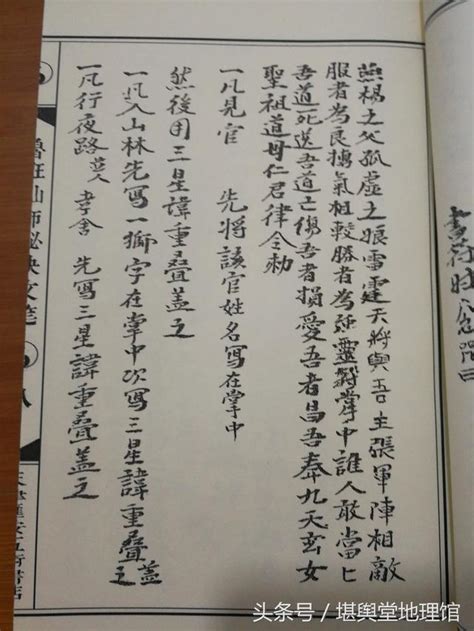 燕楊之父孤虛之娘雷霆天將與吾主張軍陣相敵
服者為良摶氣相較勝者為強靈符掌中誰人敢當匕
吾道死送吾道亡傷吾者損愛吾者昌吾奉九天玄女
聖祖道母仁君律令勅
一凡見官 先將該官姓名寫在掌中
然後用三星諱重叠盖之
一凡入山林先寫一獅字在掌中次寫三星諱重叠盖之
一凡行夜路 先寫三星諱重叠盖之
魯班仙師秘訣文筆
八
头条号 / 堪舆堂地理馆